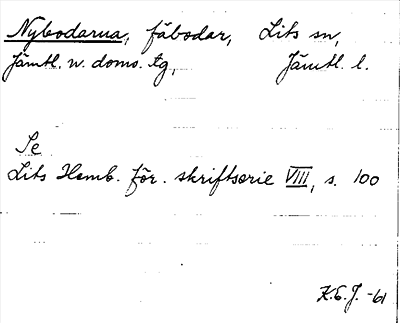 Nybodarna, fäbodar, Lits sn,
Jämtl. v. doms. tg, Jämtl. l.
Se
Lits Hemb. för. skriftserie VIII, s. 100
K.E.J. -61